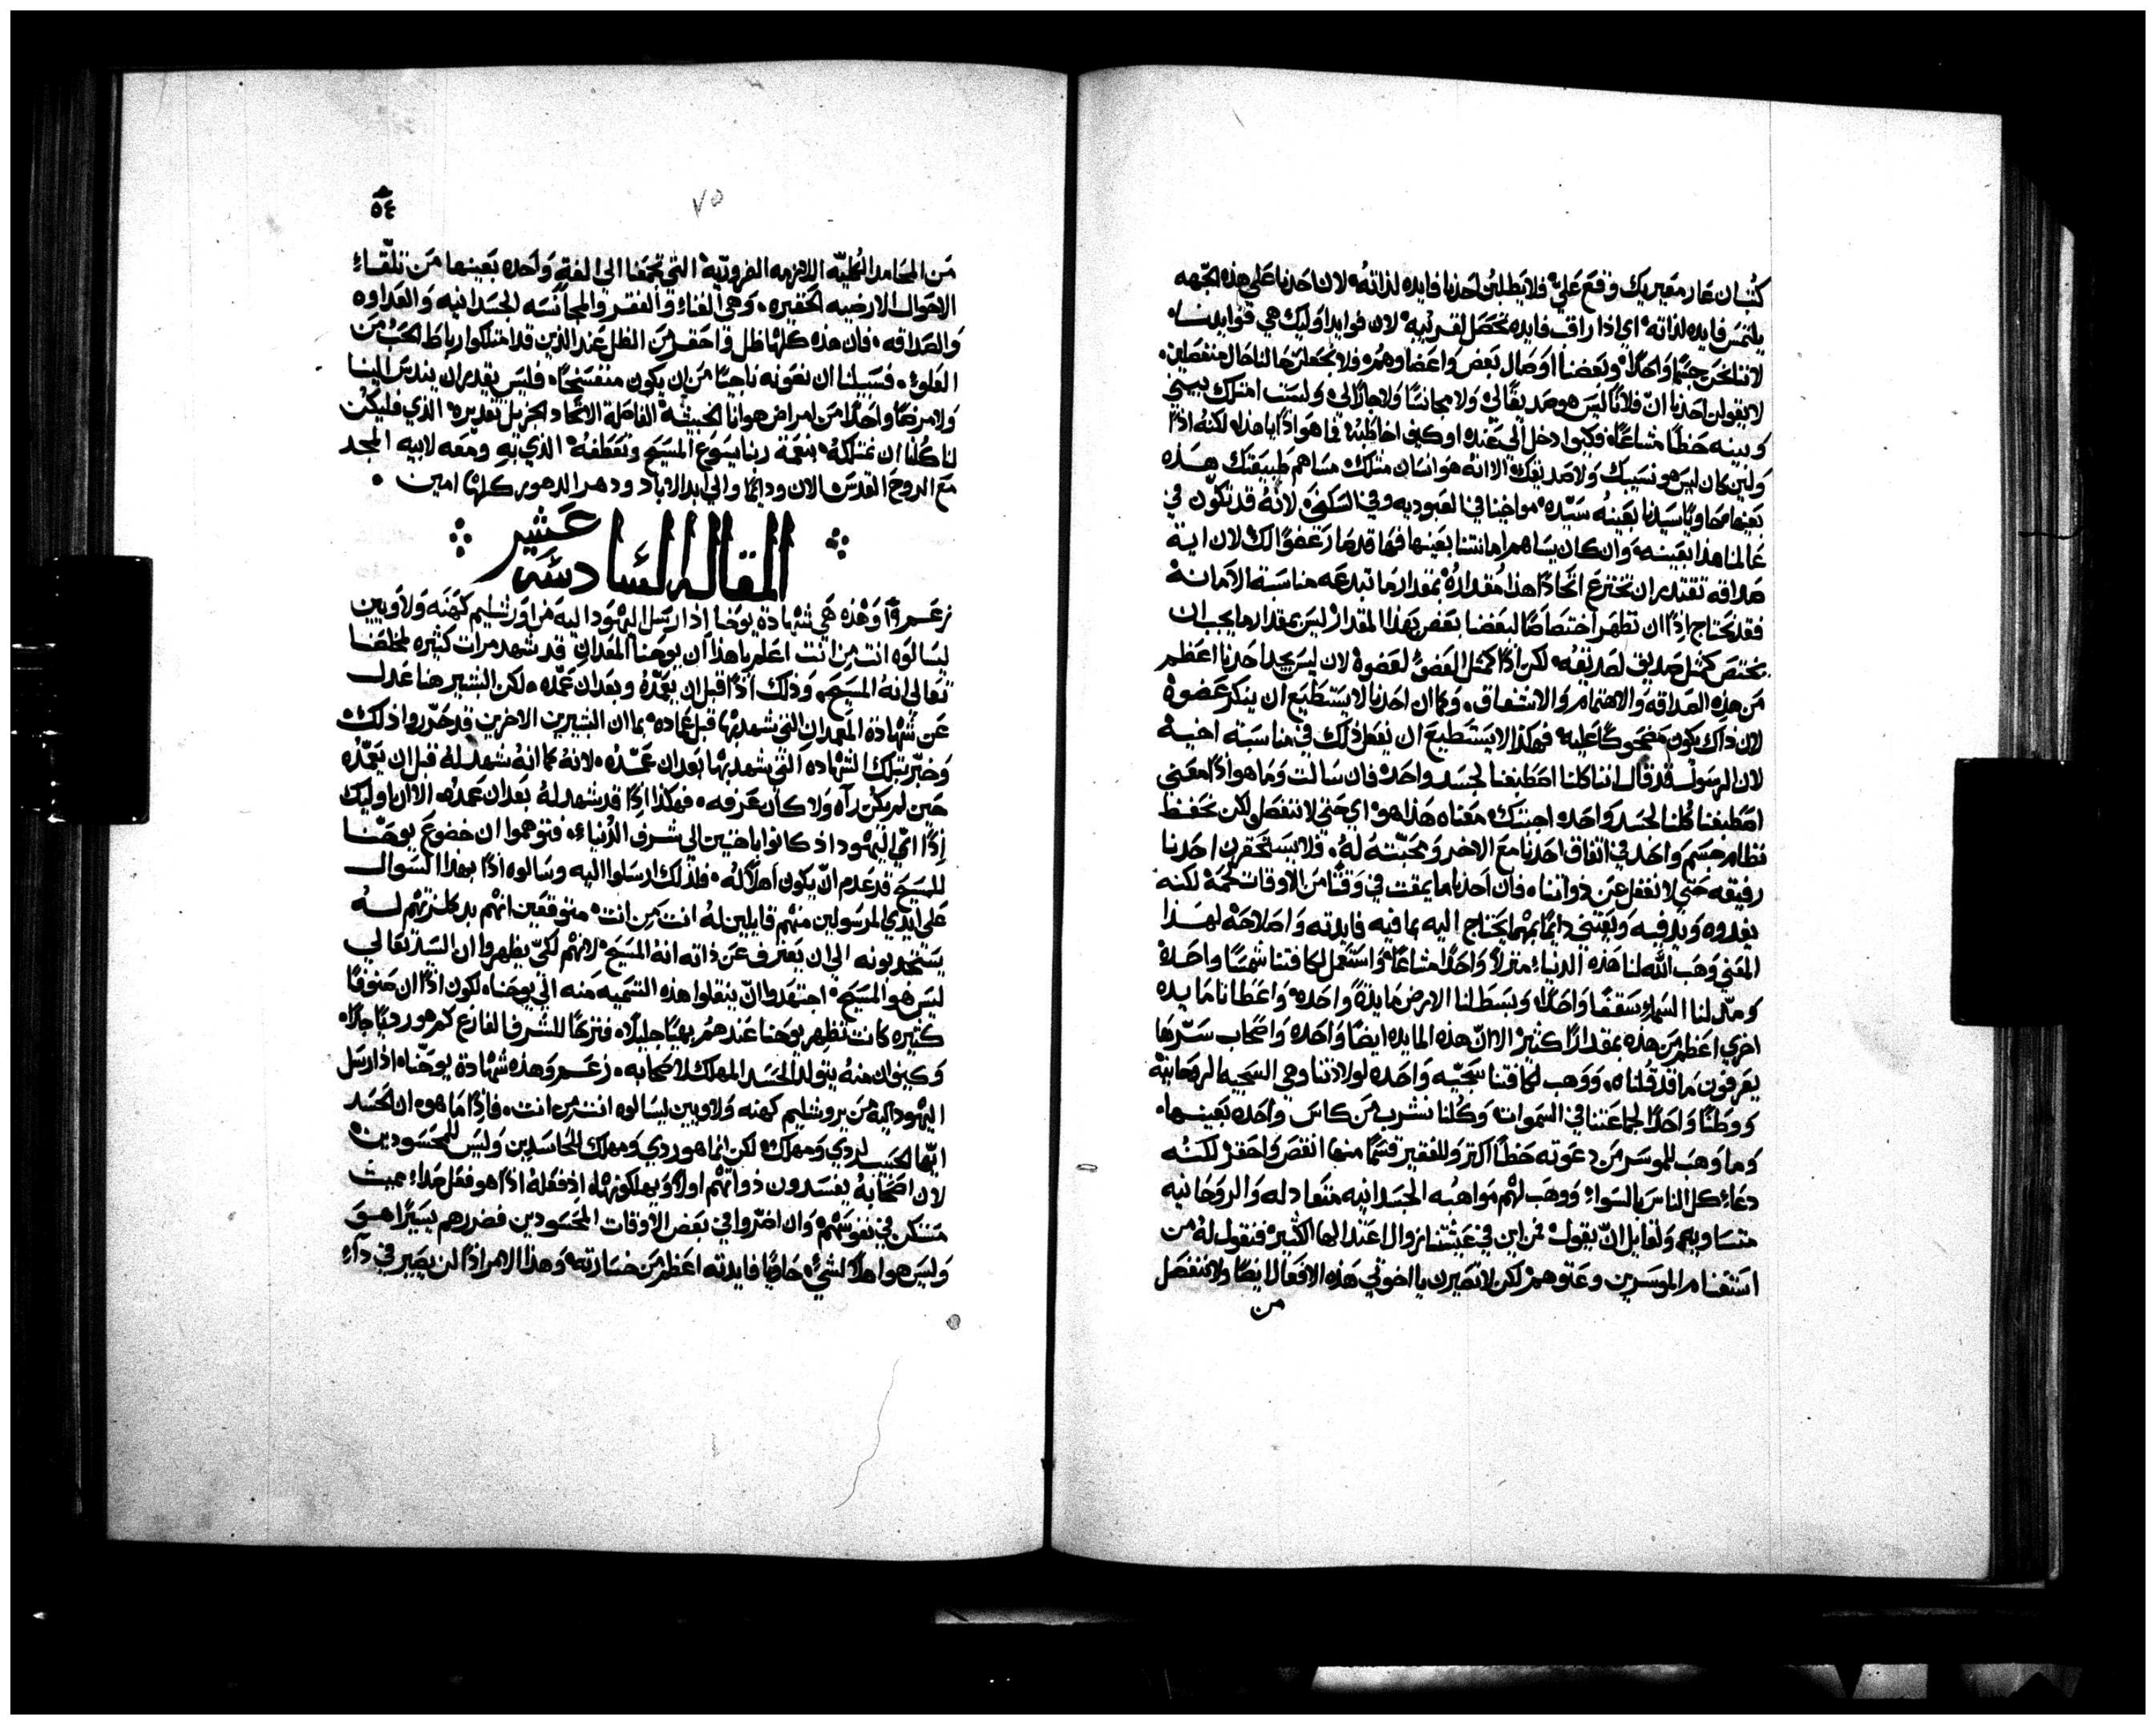 كتب ان عار معيريك وقع علي فلا يطلبن احدنا فايده لذاته لان احدنا علي هذه الجهه
يلتمس فايده لذاته اي اذا راقب فايده تحصل لقريبه لان فوايد اوليك هي فوايدنا
لاننا نحن جسما واحدا وبعضنا اوصال بعض واعضاوهم ولا تجعلن حالنا حال منفصلين
لا يقولن احدنا ان فلانا ليس هو صديقا لي ولا مجانسا ولا جارا لي ولست امتلك بيني
وبينه حظا مشاعا فكيف ادخل الي عنده او كيف اخاطبه فما هو اذا يا هذا لكنه اذا
ولين كان ليس هو نسيبك ولا صديقك الا انه هو انسان متلك مساهم طبيعتك هذه
بعينها حاويا سيدنا بعينه سيده مواخينا في العبوديه وفي السكني لانه قد تكون في
عالمنا هذا بعينه وان كان يساهم امانتنا بعينها فها قد صار عضوا لك لان اية
صداقه تقتدر ان تخترع اتحادا هذا مقداره بمقدار ما تبدعه مناسبة الامانة
فقد نحتاج اذا ان نظهر اختصاصا لبعضا بعض بهذا المقدار ليس بمقدار ما يجب ان
يختص كمثل صديق لصديقه لكن اذا كمثل العضو لعضوه لان ليس يجد احدنا اعظم
من هذه الصداقه والاهتمام والاتفاق وكما ان احدنا لا يستطيع ان ينكر عضوه
لان ذاك يكون مضحوكا عليه فهكذا لا يستطيع ان يفعل ذلك في مناسبة اخيه
لان الرسول قد قال اننا كلنا اصطبغنا لجسد واحد فان سالت وما هو اذا معني
اصطبغنا كلنا لجسد واحد اجبتك معناه هذا هو اي حتي لا ننفصل لكن نحفظ
نظام جسم واحد في اتفاق احدنا مع الاخر ومحبته له فلا يستحقرن احدنا
رفيقه حتي لا نغفل عن ذواتنا فان احدنا ما يمقت في وقتا من الاوقات لحمه لكنه
يغدوه ويدفيه ويعتني دايما بمهما يحتاج اليه بما فيه فايدته واصلاحه لهذا
المعني وهب الله لنا هذه الدنيا منزلا واحدا مشاعا واستعمل لكافتنا شمسا واحدة
ومد لنا السماء سقفا واحدا وبسط لنا الارض مايدة واحده واعطانا مايده
اخري اعظم من هذه بمقدارا كثير الا ان هذه المايده ايضا واحده واصحاب سرها
يعرفون ما قد قلناه ووهب لكافتنا سجيه واحده لولادتنا وهي السجيه الروحانية
ووطنا واحدا لجماعتنا في السموات وكلنا نشرب من كاس واحده بعينها
وما وهب للموسر من دعوته حظا اكبر وللفقير قسما منها انقص واحقر لكنه
دعا كل الناس بالسواء ووهب لهم مواهبه الجسدانيه متعادله والروحانيه
متساويه ولقايل ان يقول فمن اين في عيشتنا زوال اعتدالها الكثير فنقول له من
استغنام الموسرين وعتوهم لكن لا تصيرن يا اخوتي هذه الافعال ايضا ولا ننفصل
من
٥٤
٧٥
من المحامد الكليه اللازمه الضروريه التي تجمعنا الي الفة واحده بعينها من تلقاء
الاحوال الارضيه الحقيره وهي الغناء والفقر والمجانسه الجسدانيه والعداوه
والصداقه فان هذه كلها ظل واحقر من الظل عند الذين قد امتلكوا رباط الحب من
العلو فسبيلنا ان نصونه ناجيا من ان يكون منفسخا فليس يقدر ان يندس الينا
ولا مرضا واحدا من امراض هوانا الخبيثة الفاصلة الاتحاد الجزيل تقديره الذي فليكن
لنا كلنا ان نمتلكه بنعمة ربنا يسوع المسيح وتعطفه الذي به ومعه لابيه المجد
مع الروح القدس الان ودايما والي ابد الاباد ودهر الدهور كلها امين
المقالة السادسة عشر
زعم وهذه هي شهادة يوحنا اذ ارسل اليهود اليه من اورشليم كهنه ولاويين
ليسالوه انت من انت اعلم يا هذا ان يوحنا المعدان قد شهد مرات كثيره لمخلصنا
تعالي انه المسيح وذلك اذا قبل ان يعمده وبعد ان عمده لكن البشير هنا عدل
عن شهادة المعمدان التي شهد بها قبل عماده بما ان البشيرين الاخرين قد حرروا ذلك
وخبر بتلك الشهاده التي شهد بها بعد ان عمده لانه كما انه شهد له قبل ان يعمده
حين لم يكن رآه ولا كان عرفه فهكذا اذا قد شهد له بعد ان عمده الا ان اوليك
اذا اي اليهود اذ كانوا باخيين الي شرف الدنيا فتوهموا ان خضوع يوحنا
للمسيح قد عدم ان يكون اهلا له فلذلك ارسلوا اليه وسالوه اذا بهذا السوال
علي ايدي المرسولين منهم قايلين له انت من انت متوقعين انهم بدكلزتهم له
يستجدبونه الي ان يعترف عن ذاته انه المسيح لانهم لكي يظهروا ان السيد تعالي
ليس هو المسيح اجتهدوا ان ينقلوا هذه التسميه منه الي يوحنا لكون اذا ان صنوفا
كثيره كانت تظهر يوحنا عندهم بهيا جليلا فنزعا للشرف الفارغ كم هو رديا جدا
وكيف ان منه يتولد الحسد المهلك لاصحابه زعم وهذه شهادة يوحنا اذ ارسل
اليهود اليه من يروشليم كهنه ولاويين ليسالوه انت من انت فاذا ما هو ان الحسد
ايها الحبيب لردي ومهلك لكن انما هو ردي ومهلك للحاسدين وليس للمحسودين
لان اصحابه يفسدون ذواتهم اولا ويهلكونها اذ فعله اذا هو فعل داء مميت
متمكن في نفوسهم وان اضروا في بعض الاوقات المحسودين فضررهم يسيرا هو
وليس هو اهلا لشيء حاويا فايدته اعظم من خسارته وهذا الامر اذا لن يصير في داء